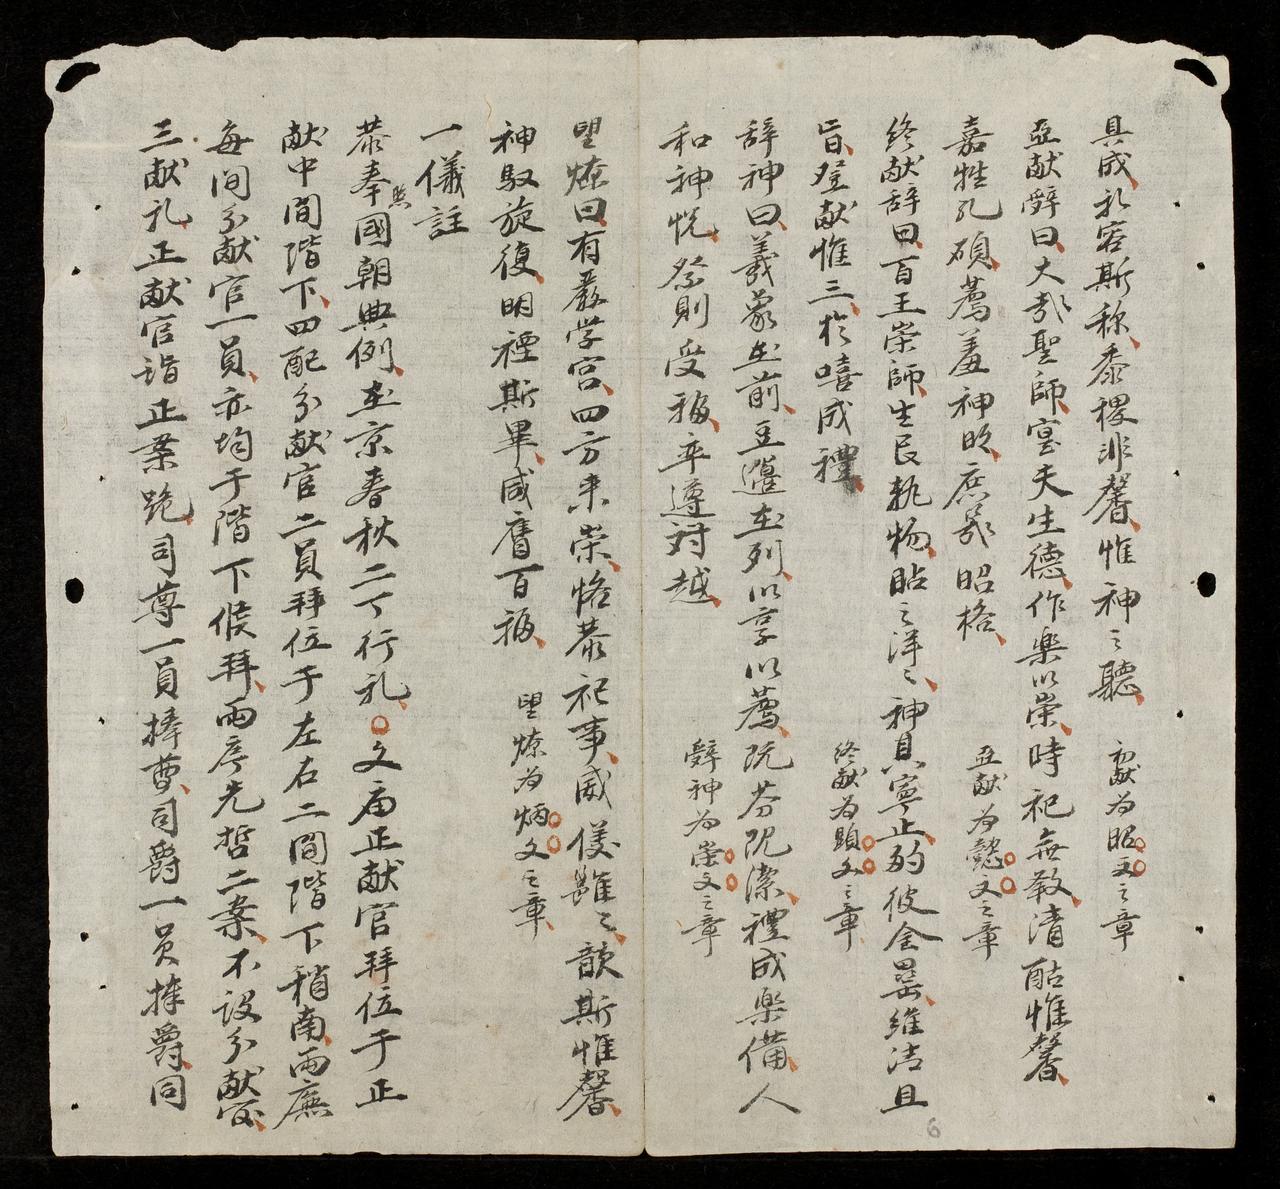 具成礼容斯称黍稷非馨惟神之聽 初献为昭文之章
亞献辭曰大哉聖師寔天生德作楽以崇時祀無斁清酤惟馨
嘉牲孔碩薦羞神明庶几昭格 亞献为懿文之章
終献辞曰百王崇師生民軌物貼之洋々神其寧止酌彼金罍維清且
旨登献惟三於嘻成禮 終献为顕文之章
辞神曰羲象在前豆籩在列以享以薦既芬既潔禮成楽備人
和神悦祭則受福率遵対越 辭神为崇文之章
望燎曰有嚴学宮四方来崇恪恭祀事威儀雝々歆斯惟馨
神馭旋復明禋斯畢咸膺百福 望燎为炳文之章
一儀註
恭奉照國朝典例在京春秋二丁行礼○文庙正献官拜位于正
献中間階下四配分献官二員拜位于左右二間階下稍南两廡
每间分献官一員亦均于階下候拜两序先哲二案不設分献官
三献礼正献官詣正案跪司尊一員捧尊司爵一员捧爵同